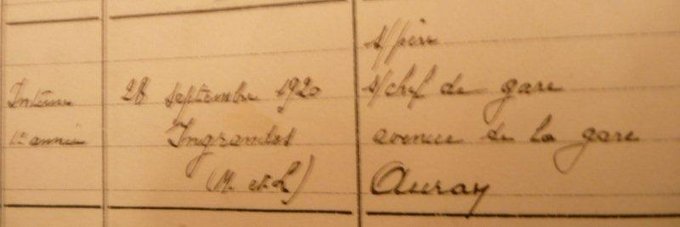 Interne
1re année
28 septembre 1920
Ingrandes
(M. et L)
s/père
s/chef de gare
avenue de la gare
Auray